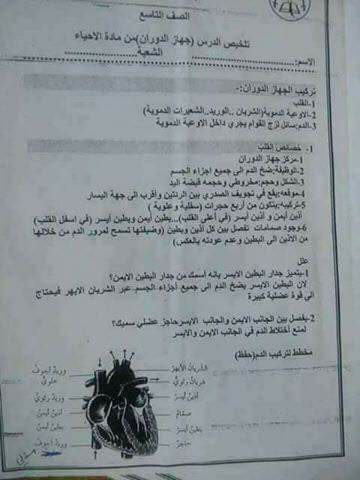 الصف التاسع
تلخيص الدرس (جهاز الدوران) من مادة الاحياء
الاسم: الشعبة
تركيب الجهاز الدوران:
1-القلب
2-الاوعية الدموية(الشريان ..الوريد..الشعيرات الدموية)
3-الدم:سائل لزج القوام يجري داخل الاوعية الدموية
1. خصائص القلب
1-مركز جهاز الدوران
2-الوظيفة:ضخ الدم الى جميع اجزاء الجسم
3-الشكل وحجم:مخروطي وحجمه قبضة اليد
4-موقعه:يقع في تجويف الصدري بين الرئتين وأقرب الى جهة اليسار
5-تركيبه:يتكون من أربع حجرات (سفلية و علوية )
أذين أيمن و أذين أيسر (في أعلى القلب)...بطين أيمن وبطين أيسر (في اسفل القلب)
6-وجود صمامات تفصل بين كل أذين وبطين (وضيفتها تسمح لمرور الدم من خلالها
من الاذين الى البطين وعدم عودته بالعكس)
علل
1-يتميز جدار البطين الايسر بانه أسمك من جدار البطين الايمن؟
لان البطين الايسر يضخ الدم الى جميع أجزاء الجسم عبر الشريان الابهر فيحتاج
الى قوة عضلية كبيرة
2-يفصل بين الجانب الايمن والجانب الايسرحاجز عضلي سميك؟
لمنع أختلاط الدم في الجانب الايمن والايسر
مخطط لتركيب الدم(حفظ)
الشريان الأبهر
شريان رئوي
أذين أيسر
صمام
بطين أيسر
حاجز
وريد أجوف
علوي
وريد رئوي
أذين أيمن
بطين أيمن
وريد أجوف
سفلي